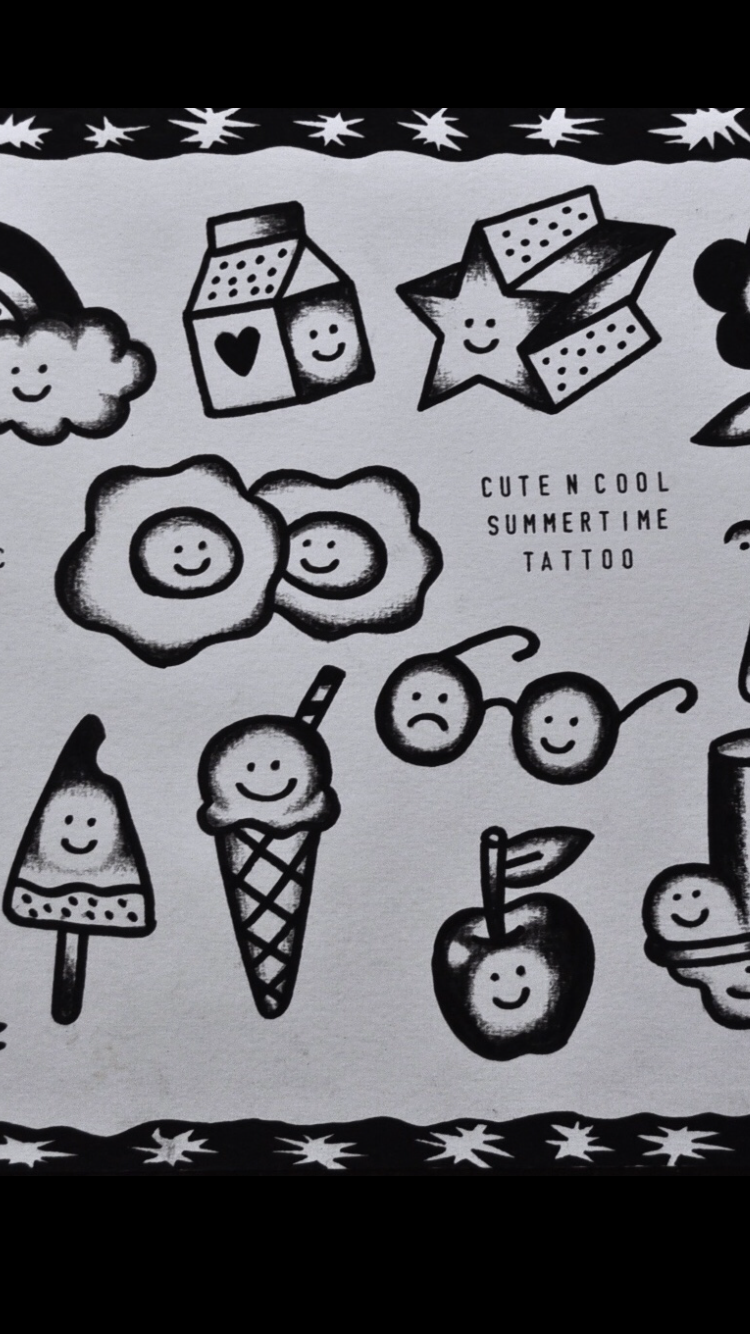 CUTE N COOL
SUMMERTIME
TATTOO